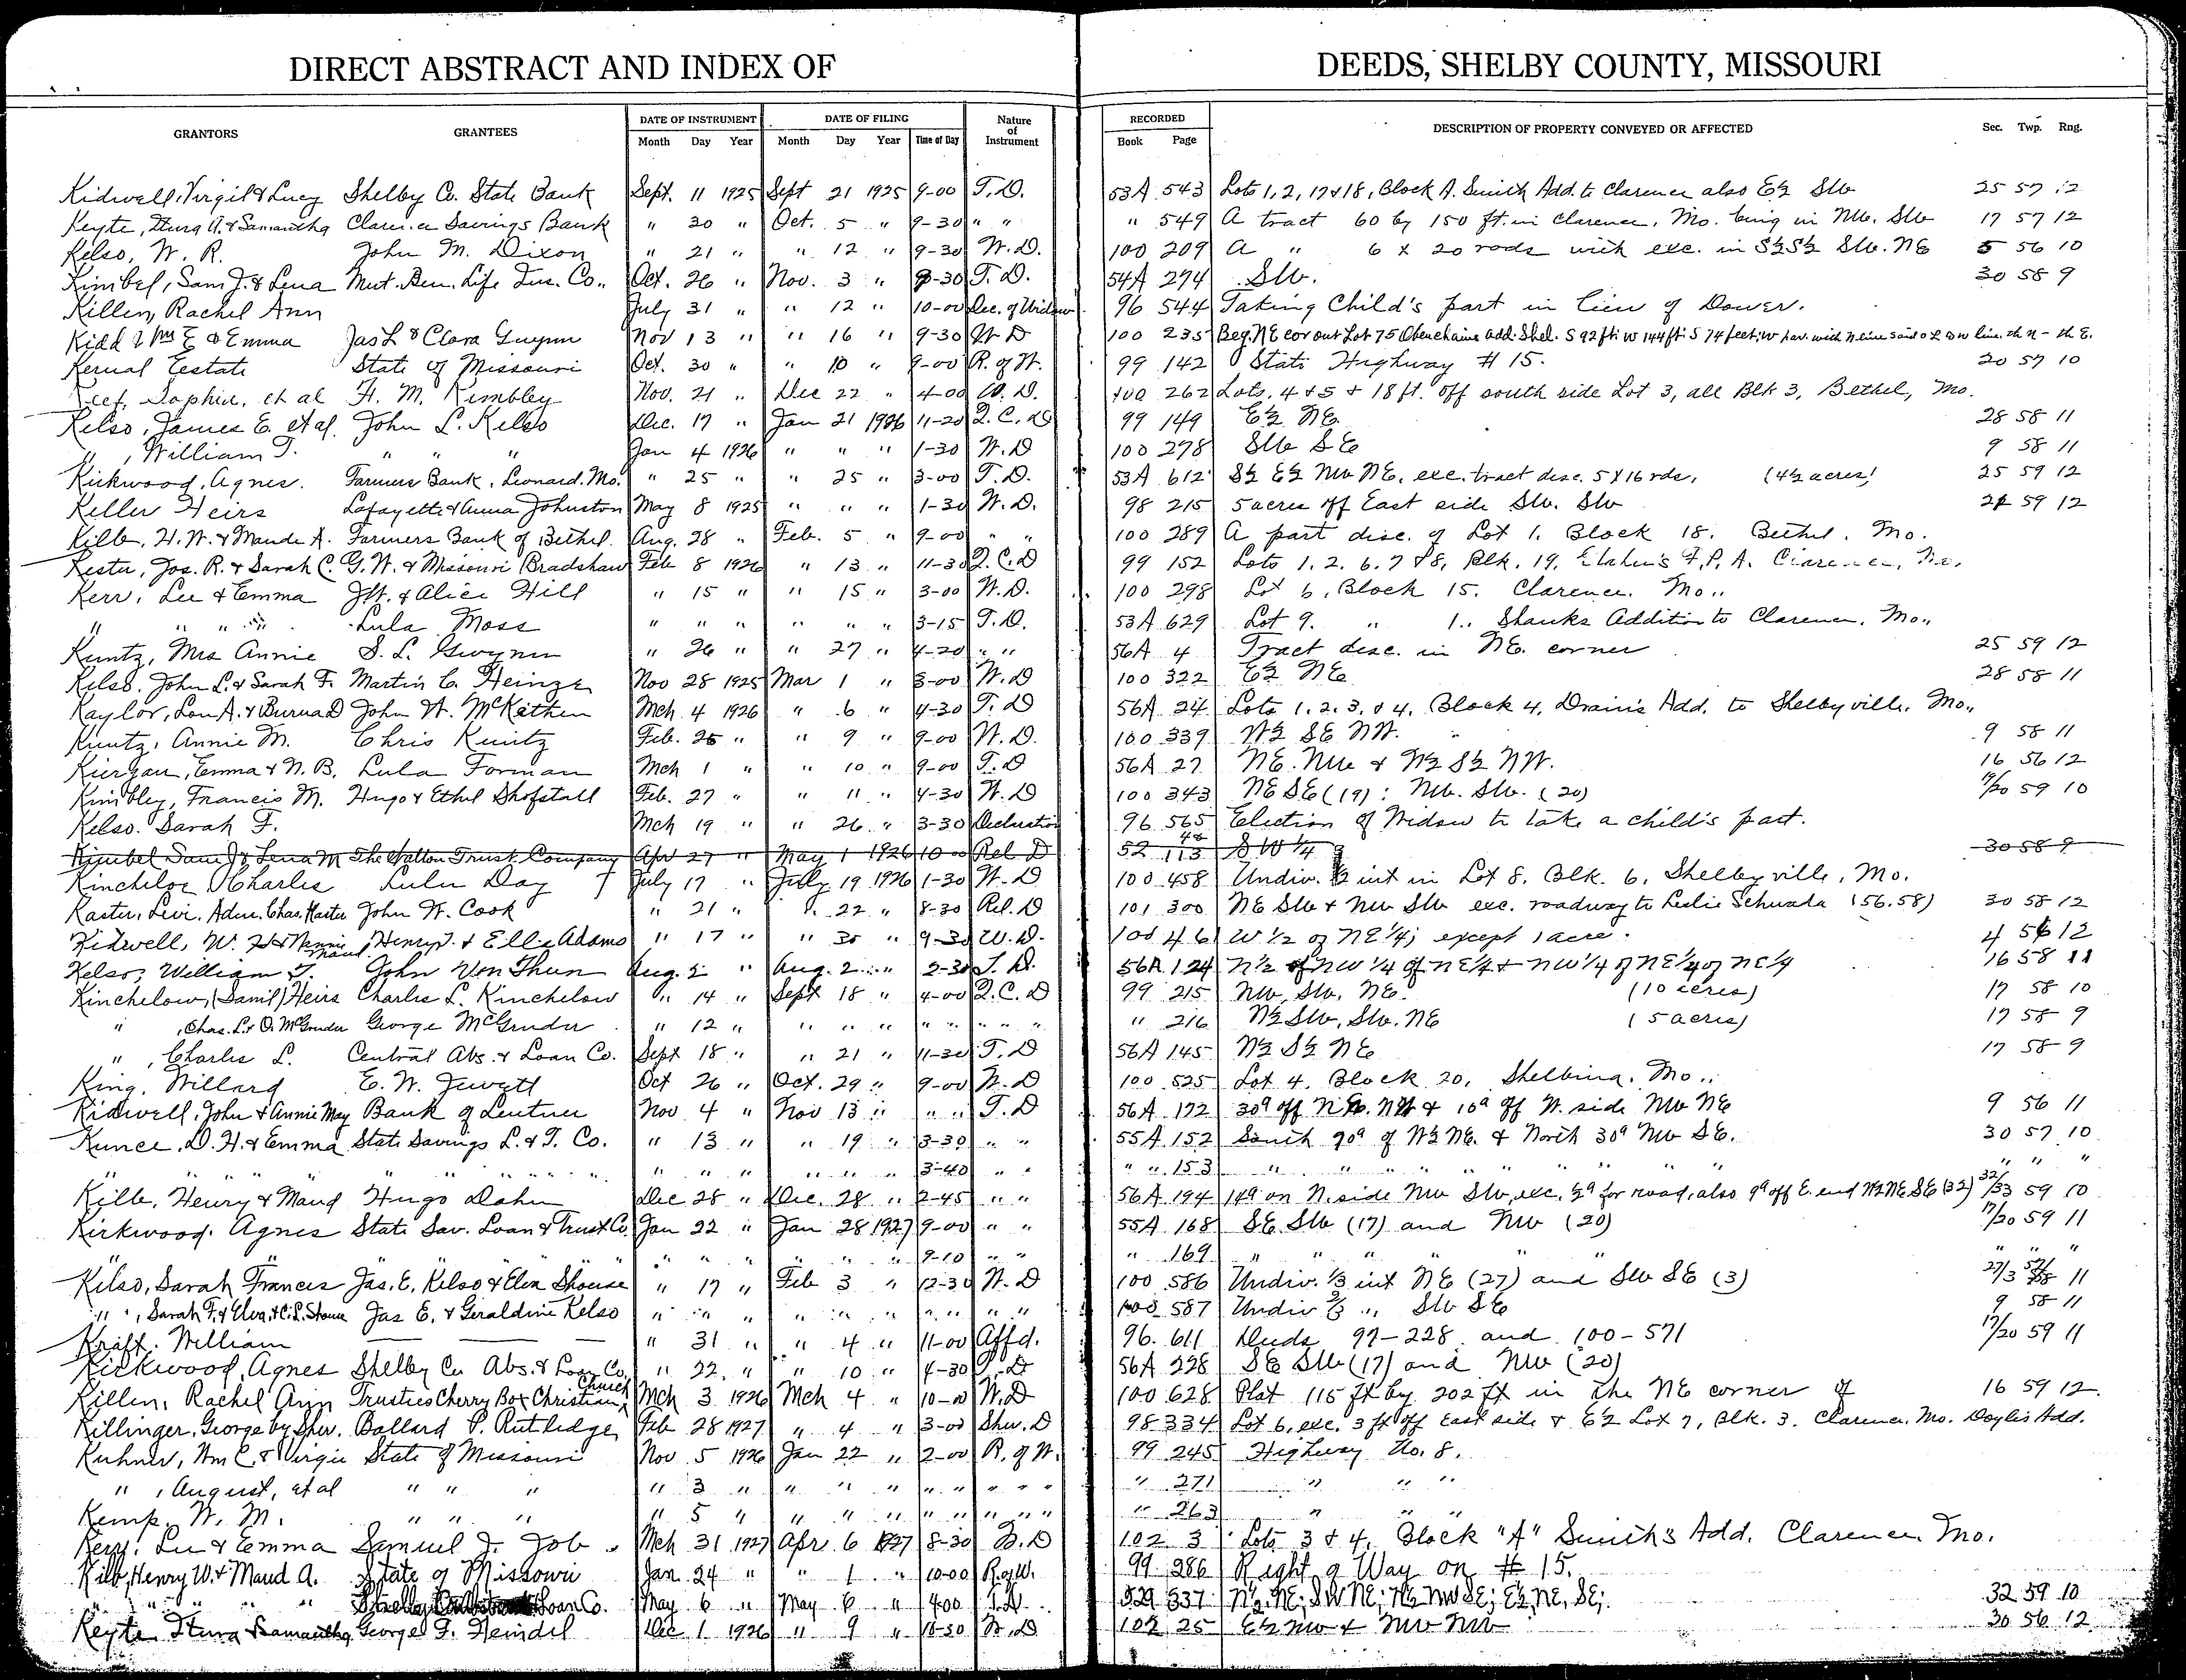 DIRECT ABSTRACT AND INDEX OF DEEDS, SHELBY COUNTY, MISSOURI
GRANTORS GRANTEES DATE OF INSTRUMENT DATE OF FILING Nature of Instrument RECORDED DESCRIPTION OF PROPERTY CONVEYED OR AFFECTED Sec. Twp. Rng.
Month Day Year Month Day Year Time of Day Book Page
Kidwell, Virgil & Lucy Shelby Co. State Bank Sept. 11 1925 Sept 21 1925 9-00 T.D. 53A 543 Lots 1, 2, 17 & 18, Block A. Smith Add. to Clarence also E½ SW 25 57 12
Keyte, A. & Samantha Clarence Savings Bank " 30 " Oct. 5 " 9-30 " " " 549 A tract 60 by 150 ft. in Clarence, Mo. being in NW. SW 17 57 12
Kelso, W. R. John M. Dixon " 21 " " 12 " 9-30 W.D. 100 209 A " 6 x 20 rods with exc. in S½ S½ SW. NE 5 56 10
Kimbel, Sam J. & Lena Mut. Ben. Life Ins. Co.. Oct. 26 " Nov. 3 " 9-30 T.D. 54A 274 SW. 30 58 9
Killen, Rachel Ann July 31 " " 12 " 10-00 Dec. of Widow 96 544 Taking Child's part in lieu of Dower.
Kidd Wm E & Emma Jas L & Clara Gwynn Nov 13 " " 16 " 9-30 W D 100 235 Beg. NE cor out Lot 75 Obenchains add. Shel. S 92 ft; W 144 ft; S 74 feet; W par. with N line said o L to W line. th n - th E.
Kernal Eestate State of Missouri Oct. 30 " " 10 " 9-00 R. of W. 99 142 State Highway # 15. 20 57 10
Sophia, et al F. M. Kimbley Nov. 21 " Dec 22 " 4-00 W. D. 100 262 Lots. 4 & 5 & 18 ft. off south side Lot 3, all Blk 3, Bethel, Mo.
Kelso, James E. et al. John L. Kelso Dec. 17 " Jan 21 1926 11-20 Q.C.D 99 149 E½ NE. 28 58 11
" , William T. " " " Jan 4 1926 " " " 1-30 W.D 100 278 SW SE 9 58 11
Kirkwood, Agnes. Farmers Bank, Leonard, Mo. " 25 " " 25 " 3-00 T.D. 53A 612 S½ E½ NW NE, exc. tract desc. 5 x 16 rds, (4½ acres) 25 59 12
Keller Heirs Lafayette & Anna Johnston May 8 1925 " " " 1-30 W.D. 98 215 5 acres off East side SW. SW 21 59 12
Kilb, H. W. & Maude A. Farmers Bank of Bethel. Aug. 28 " Feb. 5 " 9-00 " " 100 289 A part disc. of Lot 1, Block 18. Bethel, Mo.
Kester, Jos. R. & Sarah C. G. W. & Missouri Bradshaw Feb 8 1926 " 13 " 11-30 Q.C.D 99 152 Lots 1. 2. 6. 7 & 8, Blk. 19, F. P. A. Clarence, Mo.
Kerr, Lee & Emma J.W. & Alice Hill " 15 " " 15 " 3-00 W.D. 100 298 Lot 6, Block 15. Clarence. Mo..
" " " " Lula Moss " " " " " " 3-15 T.D. 53A 629 Lot 9. " 1.. Shanks Addition to Clarence, Mo..
Kuntz, Mrs Annie S. L. Gwynn " 26 " " 27 " 4-20 " " 56A 4 Tract desc. in NE. corner 25 59 12
Kelso. John L. & Sarah F. Martin C. Heinze Nov 28 1925 Mar 1 " 3-00 W.D 100 322 E½ NE 28 58 11
Kaylor, Lou A. & Burna D John W. McKethen Mch 4 1926 " 6 " 4-30 T.D 56A 24 Lots 1. 2. 3. & 4. Block 4, Drain's Add. to Shelbyville. Mo..
Kuntz, Annie M. Chris Kuntz Feb. 25 " " 9 " 9-00 W.D. 100 339 W½ SE NW. 9 58 11
Kiergan, Emma & N. B. Lula Forman Mch 1 " " 10 " 9-00 T.D 56A 27 NE. NW & N½ S½ NW. 16 56 12
Kimbley, Francis M. Hugo & Ethel Shofstall Feb. 27 " " 11 " 4-30 W.D 100 343 NE SE (19): NW. SW. (20) 19/20 59 10
Kelso. Sarah F. Mch 19 " " 26 " 3-30 Declaration 96 565 Election of Widow to take a child's part.
Kimbel Sam J & Lena M The Hatton Trust Company Apr 27 " May 1 1926 10-00 Rel D 52 113 SW ¼ 30 58 9
Kincheloe Charles Lula Day July 17 " July 19 1926 1-30 W.D 100 458 Undiv. ½ int in Lot 8. Blk. 6, Shelbyville, Mo.
Kaster, Levi, Adm. Chas. Kaster John W. Cook " 21 " " 22 " 8-30 Rel. D 101 300 NE SW & NW SW exc. roadway to Leslie Schwada (56.58) 30 58 12
Kidwell, W. H & Nannie Maud Henry J. & Ella Adams " 17 " " 30 " 9-30 W.D. 100 461 W ½ of NE ¼; except 1 acre. 4 56 12
Kelso, William T. John Von Thun Aug. 2 " Aug. 2 " 2-30 T.D. 56A 124 N½ of NW ¼ of NE ¼ & NW ¼ of NE ¼ of NE ¼ 16 58 11
Kinchelow, (Saml) Heirs Charles L. Kinchelow " 14 " Sept 18 " 4-00 Q.C.D 99 215 NW, SW, NE. (10 acres) 17 58 10
" , Chas. L. & O. McGruder George McGruder " 12 " " " " " " " " 216 N½ SW, SW. NE (5 acres) 17 58 9
" , Charles L. Central Abs. & Loan Co. Sept 18 " " 21 " 11-30 T.D 56A 145 N½ S½ NE 17 58 9
King, Willard E. W. Jewett Oct 26 " Oct. 29 " 9-00 W.D 100 525 Lot 4, Block 20, Shelbina. Mo..
Kidwell, John & Annie May Bank of Lentner Nov. 4 " Nov 13 " " " T.D 56A 172 30a off NW & 10a off W. side NW NE 9 56 11
Kunce, D. H. & Emma State Savings L. & T. Co. " 13 " " 19 " 3-30 " " 55A 152 South 70a of W½ NE. & North 30a NW SE. 30 57 10
" " " " " " " " " " " " " " 3-40 " " " " 153 " " " " " " " " " " "
Kilb, Henry & Maud Hugo Dahn Dec 28 " Dec. 28 " 2-45 " " 56A 194 14a on N. side NW SW, exc. ½a for road, also 9a off E. end N½ NE SE (32) 32/33 59 10
Kirkwood. Agnes State Sav. Loan & Trust Co Jan 22 " Jan 28 1927 9-00 " " 55A 168 SE. SW (17) and NW (20) 17/20 59 11
" " " " " " " " " " " 9-10 " " " 169 " " " " " " " " "
Kelso, Sarah Frances Jas. E. Kelso & Elva Shouse " 17 " Feb 3 " 12-30 W.D 100 586 Undiv. ⅓ int NE (27) and SW SE (3) 27/3 11
" " , Sarah F. & Elva & C.L. Shouse Jas E. & Geraldine Kelso " " " " " " " " " " 100 587 Undiv ⅔ " SW SE 9 58 11
Kraft. William " 31 " " 4 " 11-00 Affd. 96. 611 Deeds 97-228 and 100-571 17/20 59 11
Kirkwood, Agnes Shelby Co Abs. & Loan Co. " 22. " " 10 " 4-30 T.D 56A 228 SE SW (17) and NW (20)
Killen, Rachel Ann Trustees Cherry Box Christian Church Mch 3 1926 Mch 4 " 10-00 W.D 100 628 Plat 115 ft by 202 ft in the NE corner of 16 59 12.
Killinger, George by Sher. Ballard P. Rutledge Feb 28 1927 " 4 " 3-00 Sher. D 98 334 Lot 6, exc. 3 ft off East side & E½ Lot 7, Blk. 3. Clarence, Mo. Doyles Add.
Kuhner, Wm C. & Virgie State of Missouri Nov 5 1926 Jan 22 " 2-00 R. of W. 99 245 Highway No. 8.
" , August, et al " " " " 3 " " " " " " " " " " 271 " " "
Kemp, W. M. " " " " 5 " " " " " " " " " " 263 " " "
Kerr, Lee & Emma Samuel J. Job Mch 31 1927 Apr. 6 1927 8-30 W.D 102 3 Lots 3 & 4, Block "A" Smith's Add. Clarence, Mo.
Kilb, Henry W. & Maud A. State of Missouri Jan. 24 " " 1 " 10-00 R. of W. 99 286 Right of Way on # 15.
" " " " " Shelby Loan Co. May 6 " May 6 " 4-00 T.D. 337 N½, NE; SW NE; N½ NW SE; E½, NE, SE; 32 59 10
Keyte, & Samantha George F. Heindel Dec 1 1926 " 9 " W.D 102 25 E½ NW & NW NW 30 56 12